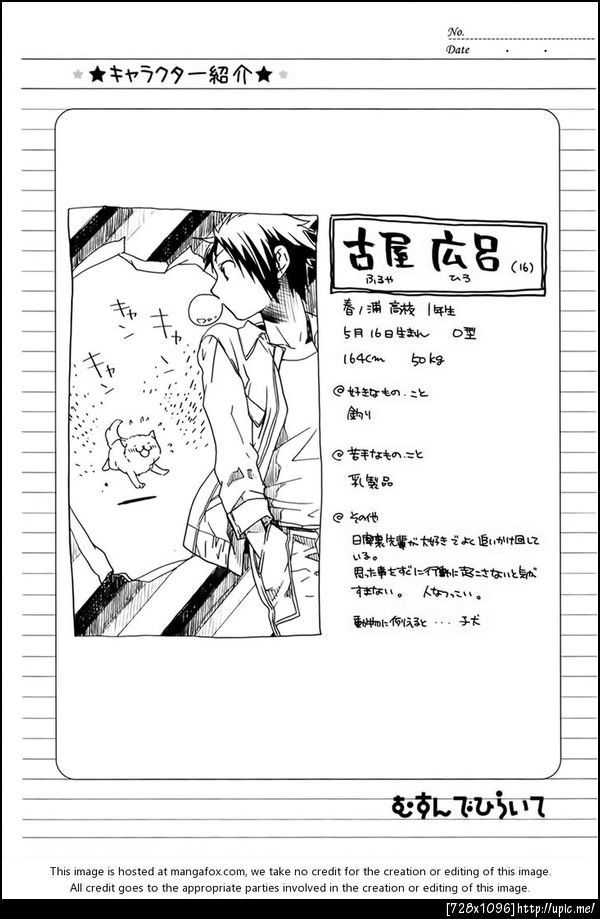 No.
Date ・ ・
★★キャラクター紹介★★
古屋 広呂 (16)
ふるや ひろ
春ノ浦 高校 1年生
5月16日生まれ O型
164cm 50kg
@好きなもの・こと
釣り
@苦手なもの・こと
乳製品
@その他
先輩が大好きでよく追いかけ回して
いる。
思った事をすぐに行動に起こさないと気が
すまない。 人なつっこい。
動物に例えると・・・子犬
キャンキャン
むすんでひらいて
This image is hosted at mangafox.com, we take no credit for the creation or editing of this image.
All credit goes to the appropriate parties involved in the creation or editing of this image.
[728x1096]http://upic.me/